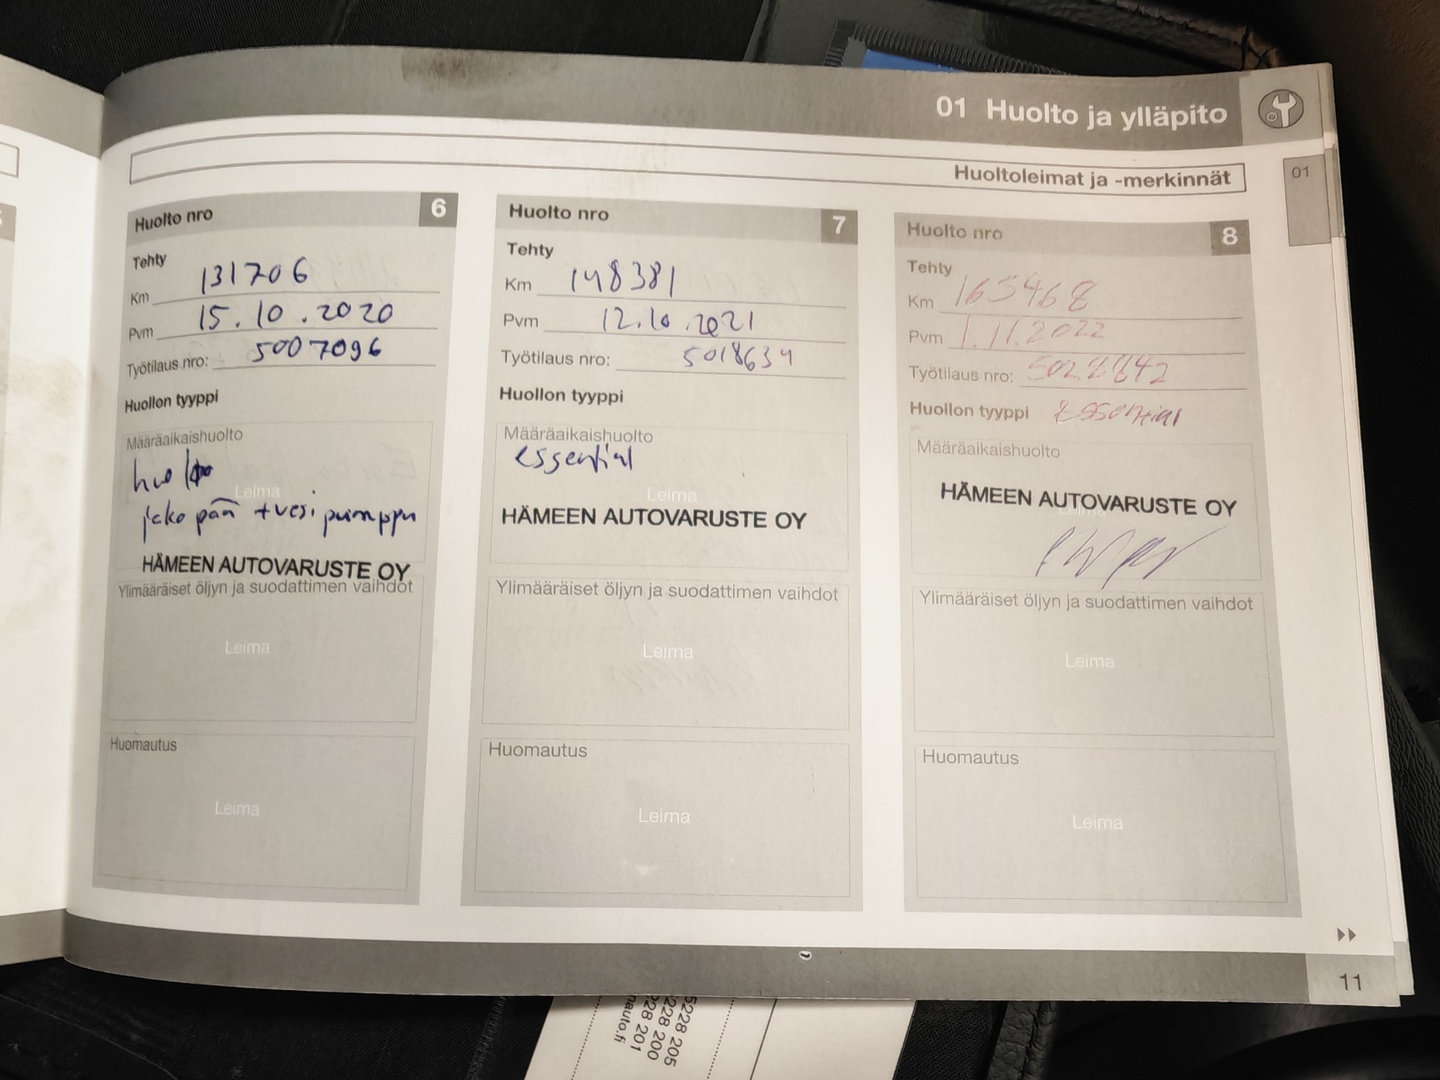 01 Huolto ja ylläpito
Huoltoleimat ja -merkinnät
01
Huolto nro 6
Tehty
Km 131706
Pvm 15.10.2020
Työtilaus nro: 5007096
Huollon tyyppi
Määräaikaishuolto
huolto
Leima
jakopää + vesipumppu
HÄMEEN AUTOVARUSTE OY
Ylimääräiset öljyn ja suodattimen vaihdot
Leima
Huomautus
Leima
Huolto nro 7
Tehty
Km 148381
Pvm 12.10.2021
Työtilaus nro: 5018634
Huollon tyyppi
Määräaikaishuolto
essential
Leima
HÄMEEN AUTOVARUSTE OY
Ylimääräiset öljyn ja suodattimen vaihdot
Leima
Huomautus
Leima
Huolto nro 8
Tehty
Km 165468
Pvm 1.11.2022
Työtilaus nro: 5028842
Huollon tyyppi Essential
Määräaikaishuolto
HÄMEEN AUTOVARUSTE OY
Leima
Ylimääräiset öljyn ja suodattimen vaihdot
Leima
Huomautus
Leima
11
5228 205
228 200
228 201
nauto.fi